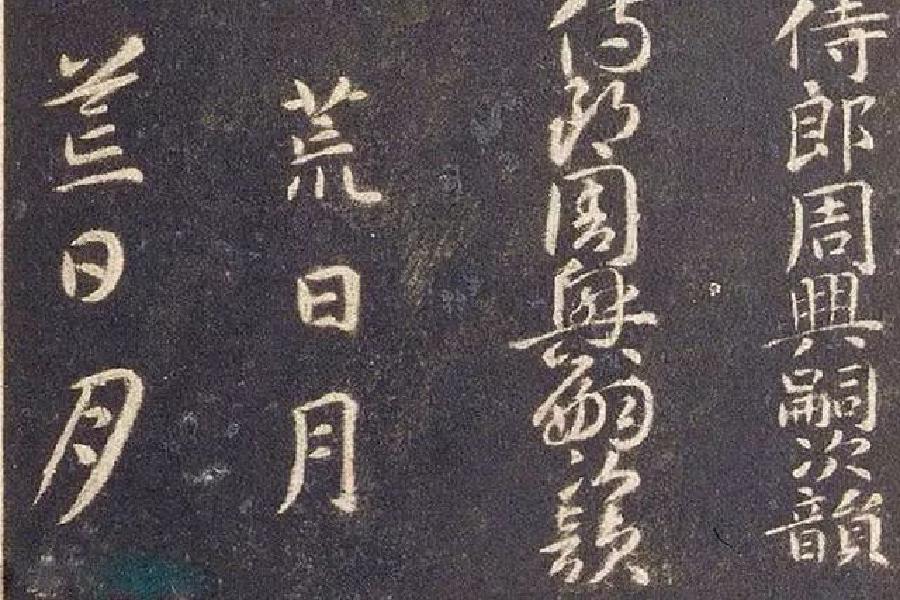 侍郎周興嗣次韻
侍郎周興嗣次韻
荒日月
荒日月